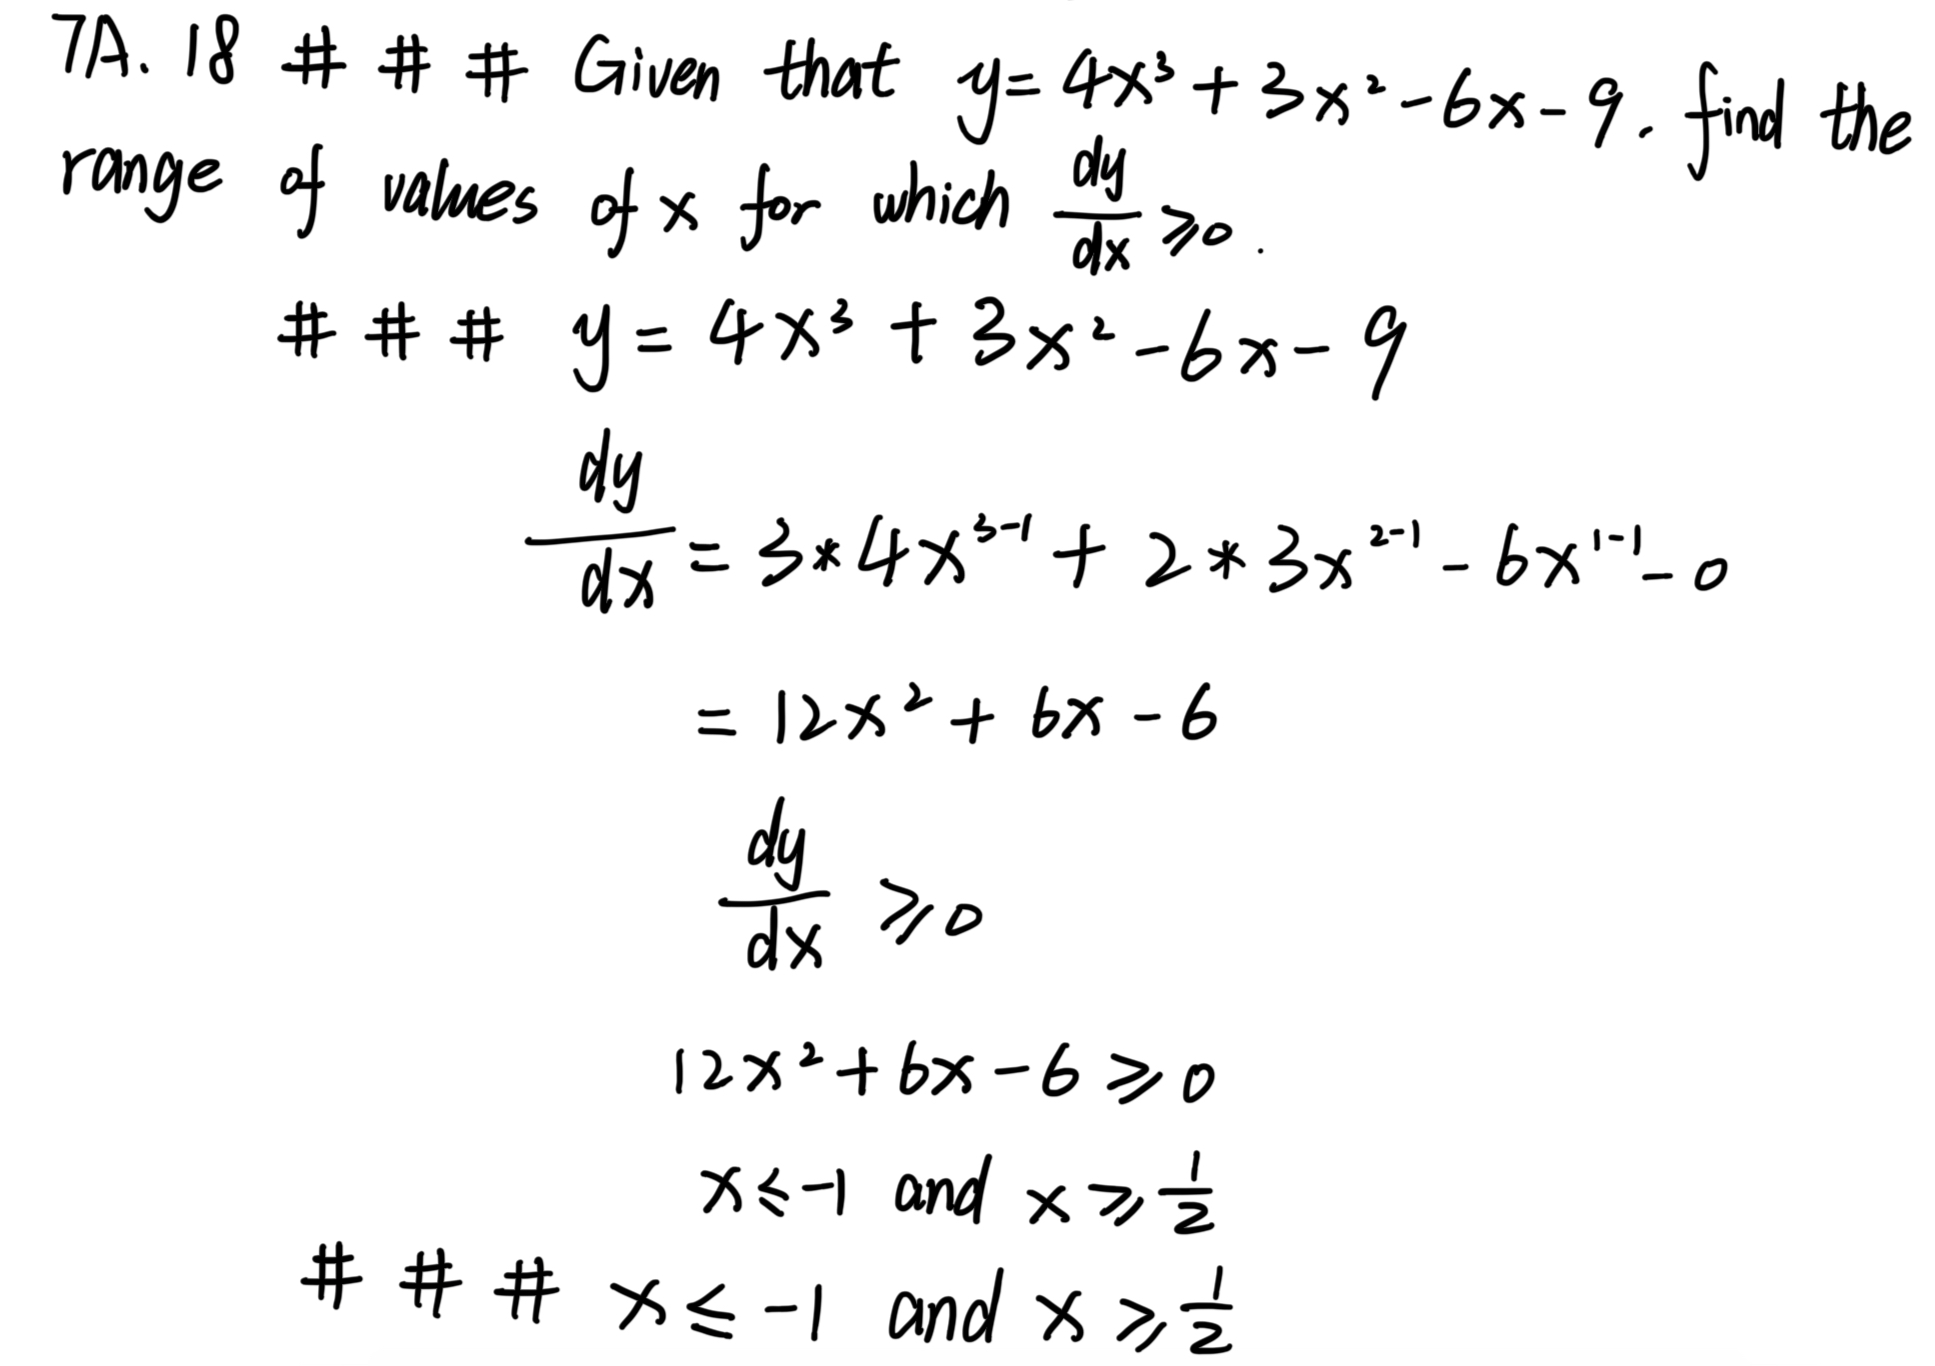 7A. 18 # # # Given that y = 4x³ + 3x² - 6x - 9. find the
range of values of x for which dy/dx ⩾ 0.
# # # y = 4x³ + 3x² - 6x - 9
dy/dx = 3*4x³⁻¹ + 2*3x²⁻¹ - 6x¹⁻¹ - 0
= 12x² + 6x - 6
dy/dx ⩾ 0
12x² + 6x - 6 ⩾ 0
x ⩽ -1 and x ⩾ 1/2
# # # x ≤ -1 and x ⩾ 1/2